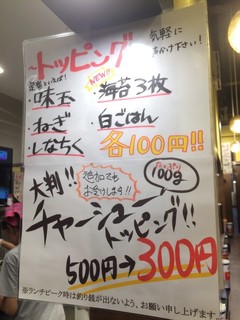 ~トッピング~
気軽に
お声かけ下さい!
定番といえば!
味玉
NEW!!
・海苔3枚
・ねぎ
・白ごはん
・しなちく
各100円!!
大判!!
追加でも
お受けします!!
たっぷり
100g
チャーシュー
トッピング!!
500円→300円
※ランチピーク時は釣り銭が出ないよう、お願い申し上げます